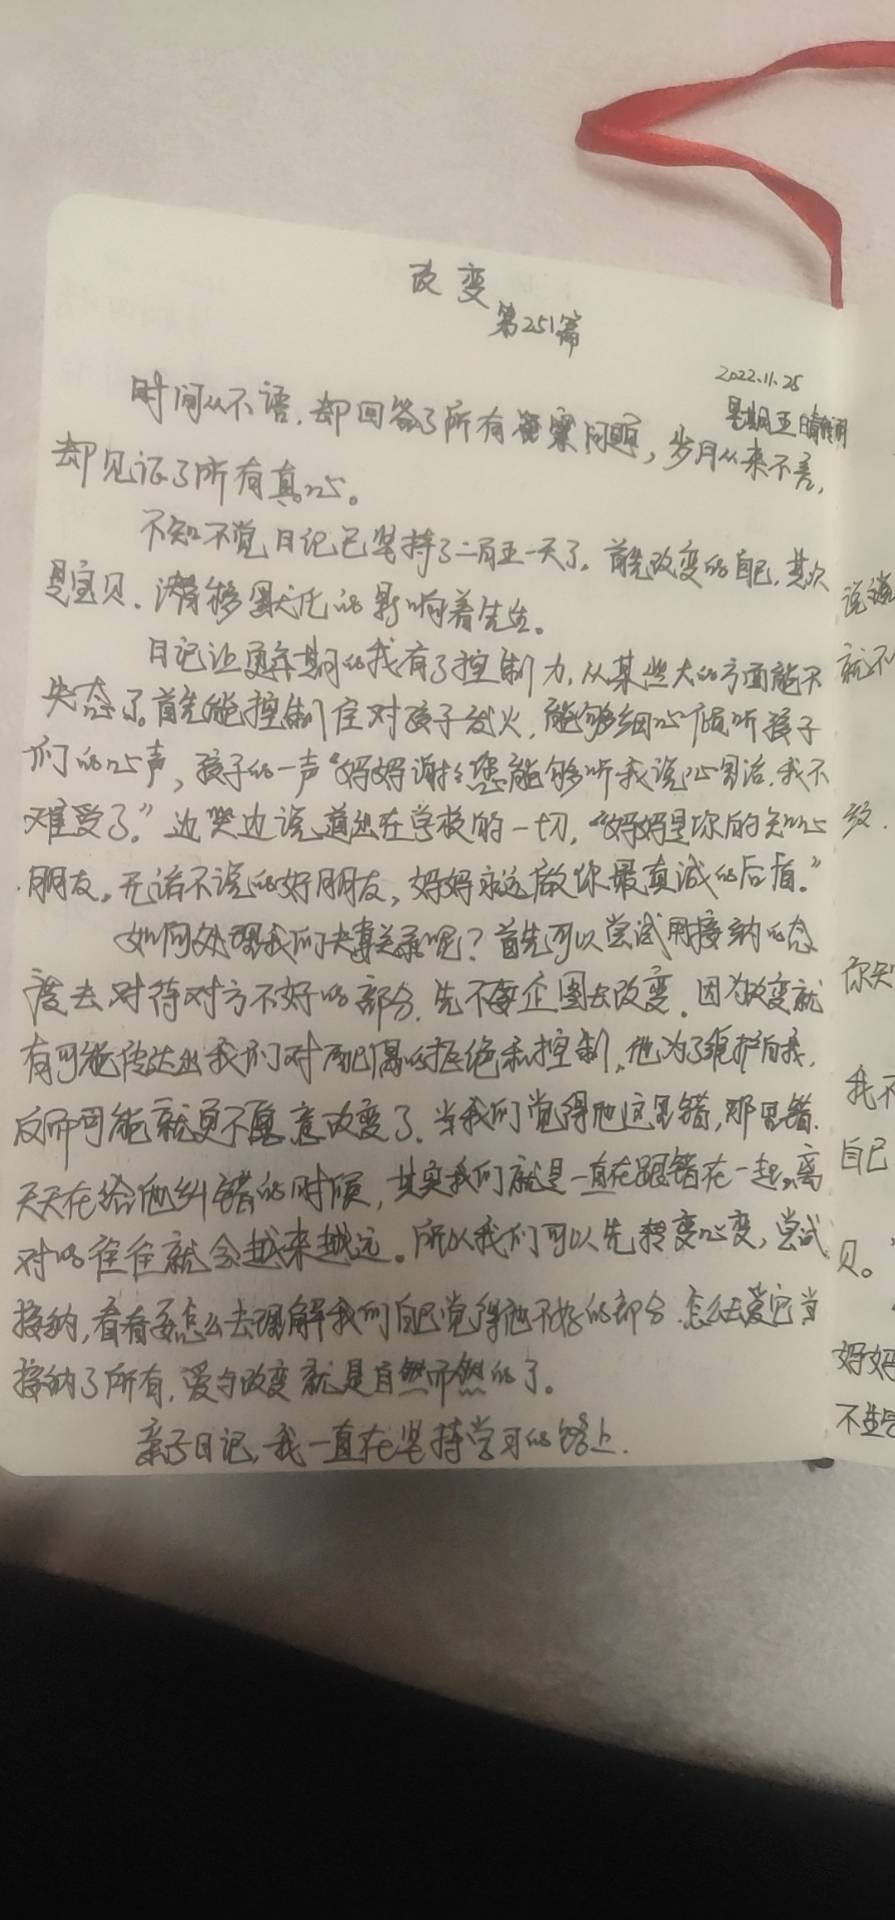 改变
第251篇
2022.11.25
星期五 晴
时间从不语，却回答了所有问题，岁月从来不言，
却见证了所有真心。
不知不觉日记已坚持了二百五一天了。首先改变的自己，其次
是宝贝，潜移默化的影响着先生。
日记让更年期的我有了控制力，从某些大的方面能不
失态了。首先能控制住对孩子发火，能够细心倾听孩子
们的心声，孩子的一声“妈妈谢谢您能够听我说心里话，我不
难受了。”边哭边说道出在学校的一切，“妈妈是你的知心
朋友，无话不说的好朋友，妈妈永远做你最真诚的后盾。”
如何处理我们夫妻关系呢？首先可以尝试用接纳的态
度去对待对方不好的部分，先不要企图去改变，因为改变就
有可能传达出我们对配偶的拒绝和控制，他为了维护自我，
反而可能就更不愿意改变了。当我们觉得他这里错，那里错，
天天在给他纠错的时候，其实我们就是一直在跟错在一起，离
对的往往就会越来越远。所以我们可以先转变心变，尝试
接纳，看看要怎么去理解我们自己觉得他不好的部分，怎么去爱它当
接纳了所有，爱与改变就是自然而然的了。
亲子日记，我一直在坚持学习的路上.
说
就不
纹.
你知
我不
自己
贝。
好妈
不生气